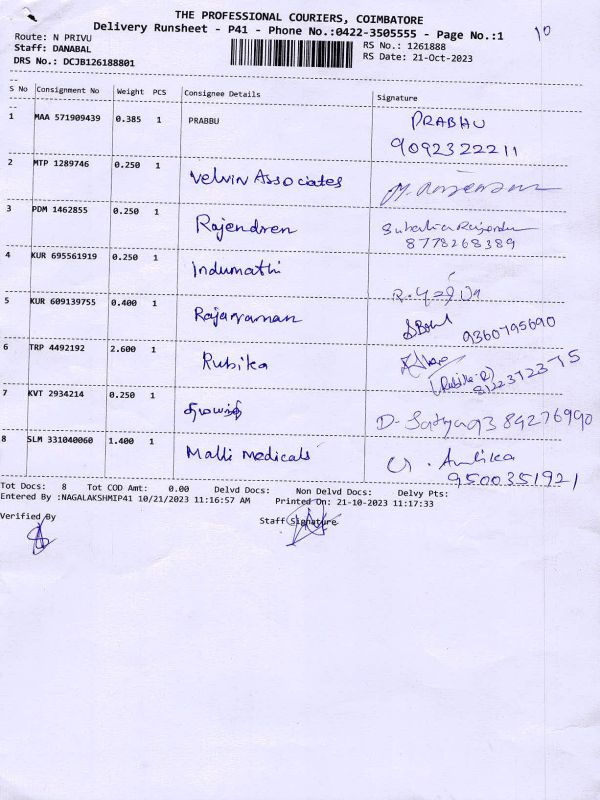 THE PROFESSIONAL COURIERS, COIMBATORE
10
Delivery Runsheet - P41 - Phone No.:0422-3505555 - Page No.:1
Route: N PRIVU
RS No.: 1261888
Staff: DANABAL
RS Date: 21-Oct-2023
DRS No.: DCJB126188801
S No Consignment No Weight PCS Consignee Details Signature
1 MAA 571909439 0.385 1 PRABBU PRABHU
9092322211
2 MTP 1289746 0.250 1 Velvin Associates
3 PDM 1462855 0.250 1 Rajendren
8778268389
4 KUR 695561919 0.250 1 Indumathi
5 KUR 609139755 0.400 1 Rajaraman 9360795690
6 TRP 4492192 2.600 1 Rubika
(Rubika.R)
7 KVT 2934214 0.250 1 D. Sathya 9384276990
8 SLM 331040060 1.400 1 Malli medicals G. Ambika
9500351921
Tot Docs: 8 Tot COD Amt: 0.00 Delvd Docs: Non Delvd Docs: Delvy Pts:
Entered By :NAGALAKSHMIP41 10/21/2023 11:16:57 AM Printed On: 21-10-2023 11:17:33
Verified By Staff Signature